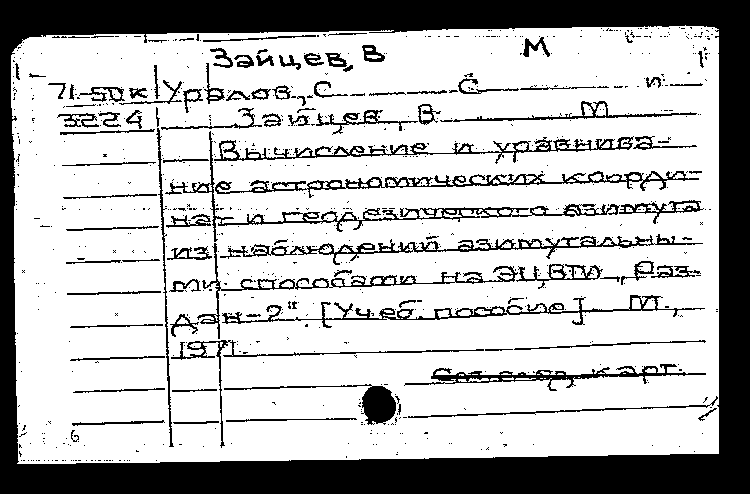 Зайцев, В М
71-50к Уралов, С С и
3224 Зайцев, В М
Вычисление и уравнива-
ние астрономических коорди-
нат и геодезического азимута
из наблюдений азимутальны-
ми способами на ЭЦВТИ „Раз-
дан-2". [Учеб. пособие] М.,
1971.
См. след. карт.
6